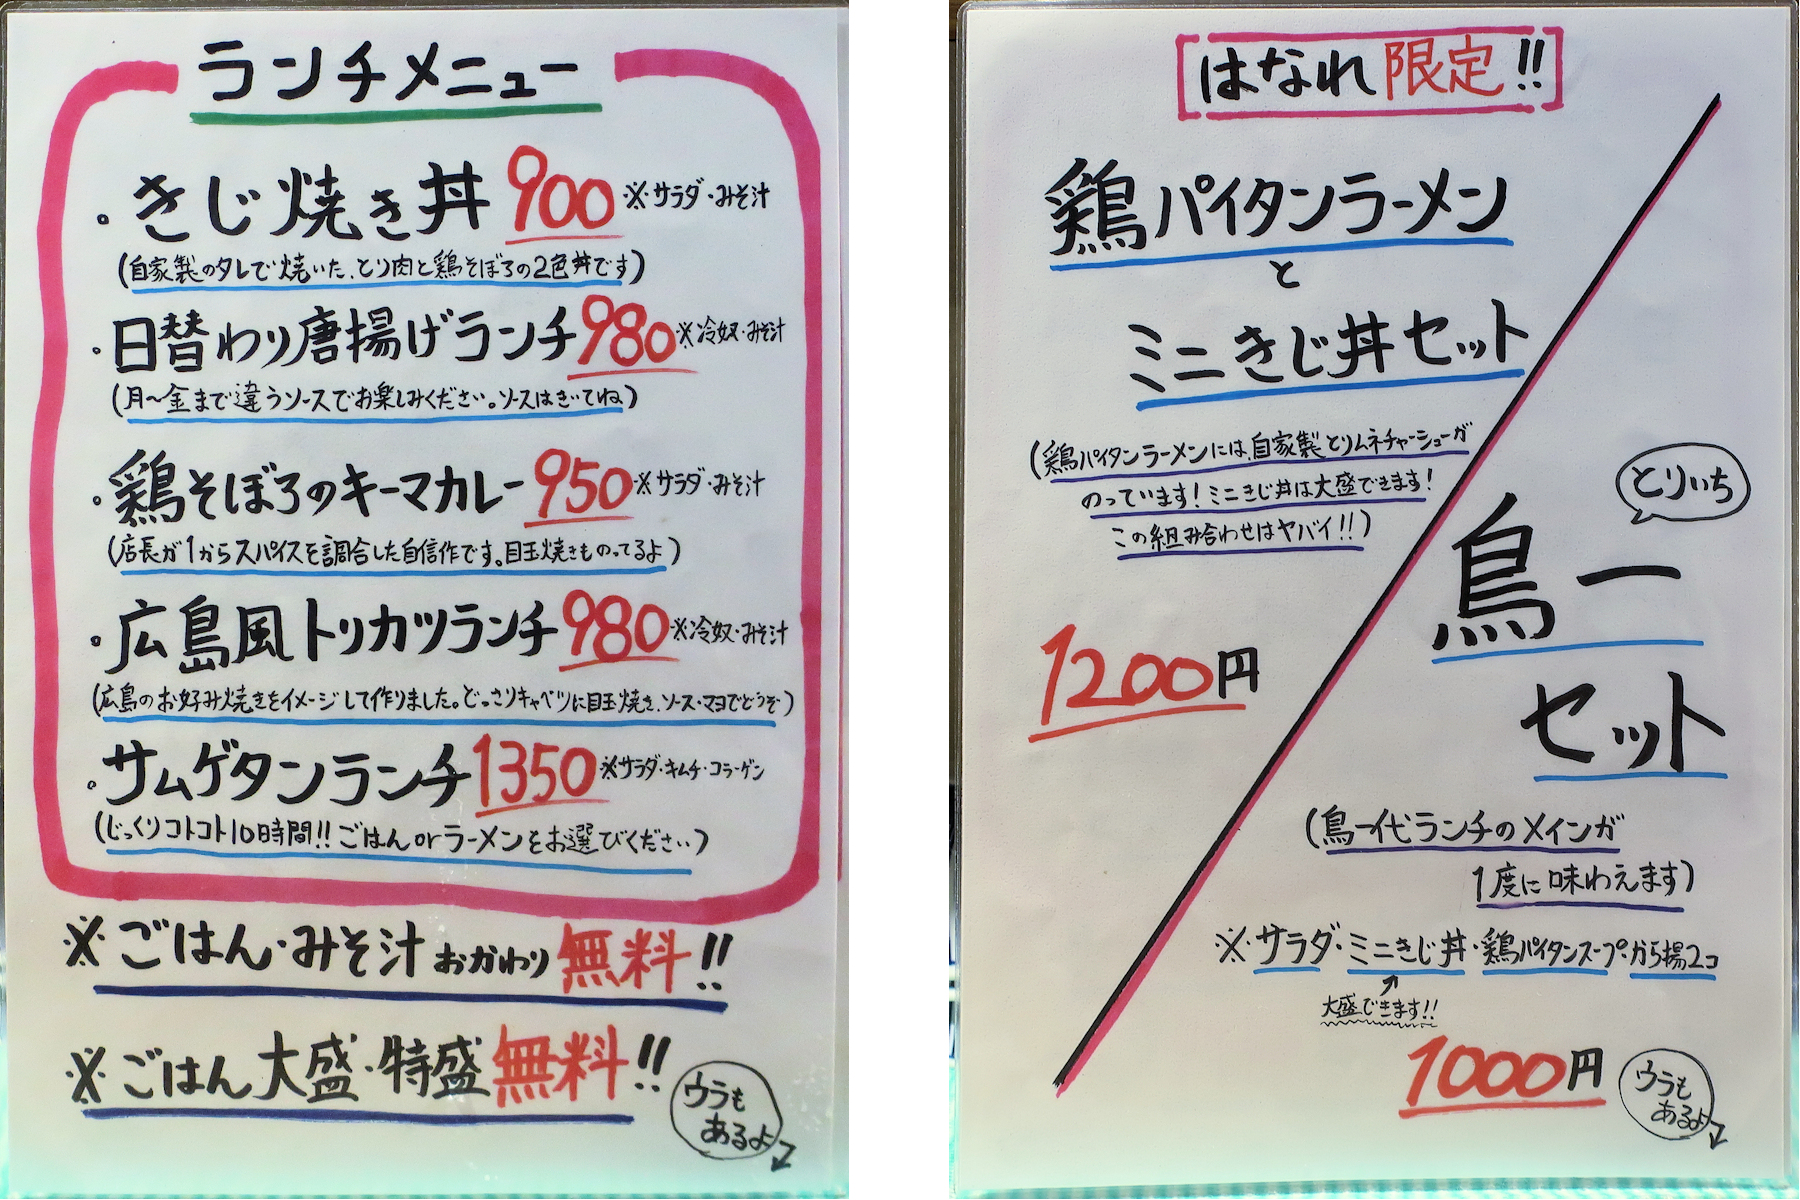 ランチメニュー
・きじ焼き丼 900 ※サラダ・みそ汁
(自家製のタレで焼いた、とり肉と鶏そぼろの2色丼です)
・日替わり唐揚げランチ 980 ※冷奴・みそ汁
(月〜金まで違うソースでお楽しみください。ソースはきいてね)
・鶏そぼろのキーマカレー 950 ※サラダ・みそ汁
(店長が1からスパイスを調合した自信作です。目玉焼きものってるよ)
・広島風トリカツランチ 980 ※冷奴・みそ汁
(広島のお好み焼きをイメージして作りました。どっさりキャベツに目玉焼き、ソース・マヨでどうぞ)
・サムゲタンランチ 1350 ※サラダ・キムチ・コラーゲン
(じっくりコトコト10時間!!ごはんorラーメンをお選びください)
※ごはん・みそ汁おかわり無料!!
※ごはん大盛・特盛無料!!
ウラも
あるよ
はなれ限定!!
鶏パイタンラーメン
と
ミニきじ丼セット
(鶏パイタンラーメンには、自家製とりムネチャーシューが
のっています!ミニきじ丼は大盛できます!
この組み合わせはヤバイ!!)
1200円
とりいち
鳥一
セット
(鳥一代ランチのメインが
1度に味わえます)
※サラダ・ミニきじ丼・鶏パイタンスープ・から揚2コ
大盛できます!!
1000円
ウラも
あるよ